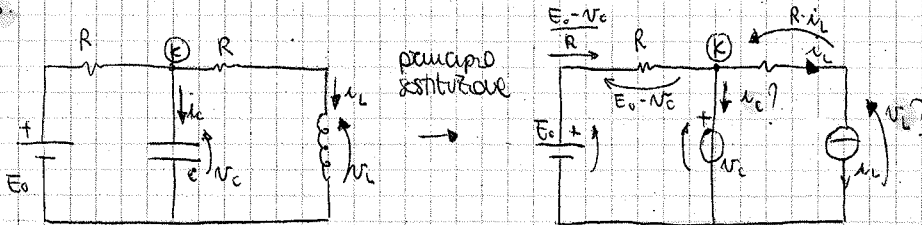 R
K
R
i_c
+
E_0
c
v_c
i_L
v_L
principio
sostituzione
E_0 - v_c
R
R
E_0 - v_c
K
R·i_L
i_L
i_c ?
E_0
+
+
v_c
v_L ?
i_L